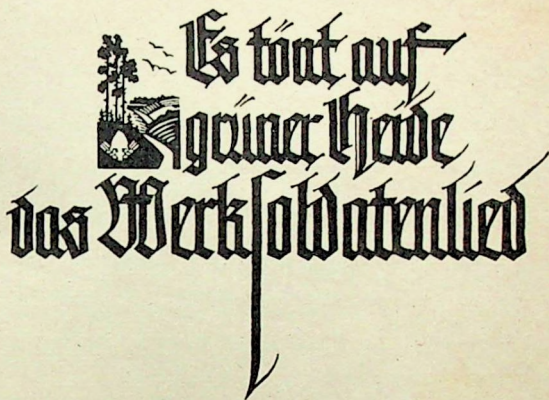 Es tönt auf
grüner Heide
das Werksoldatenlied